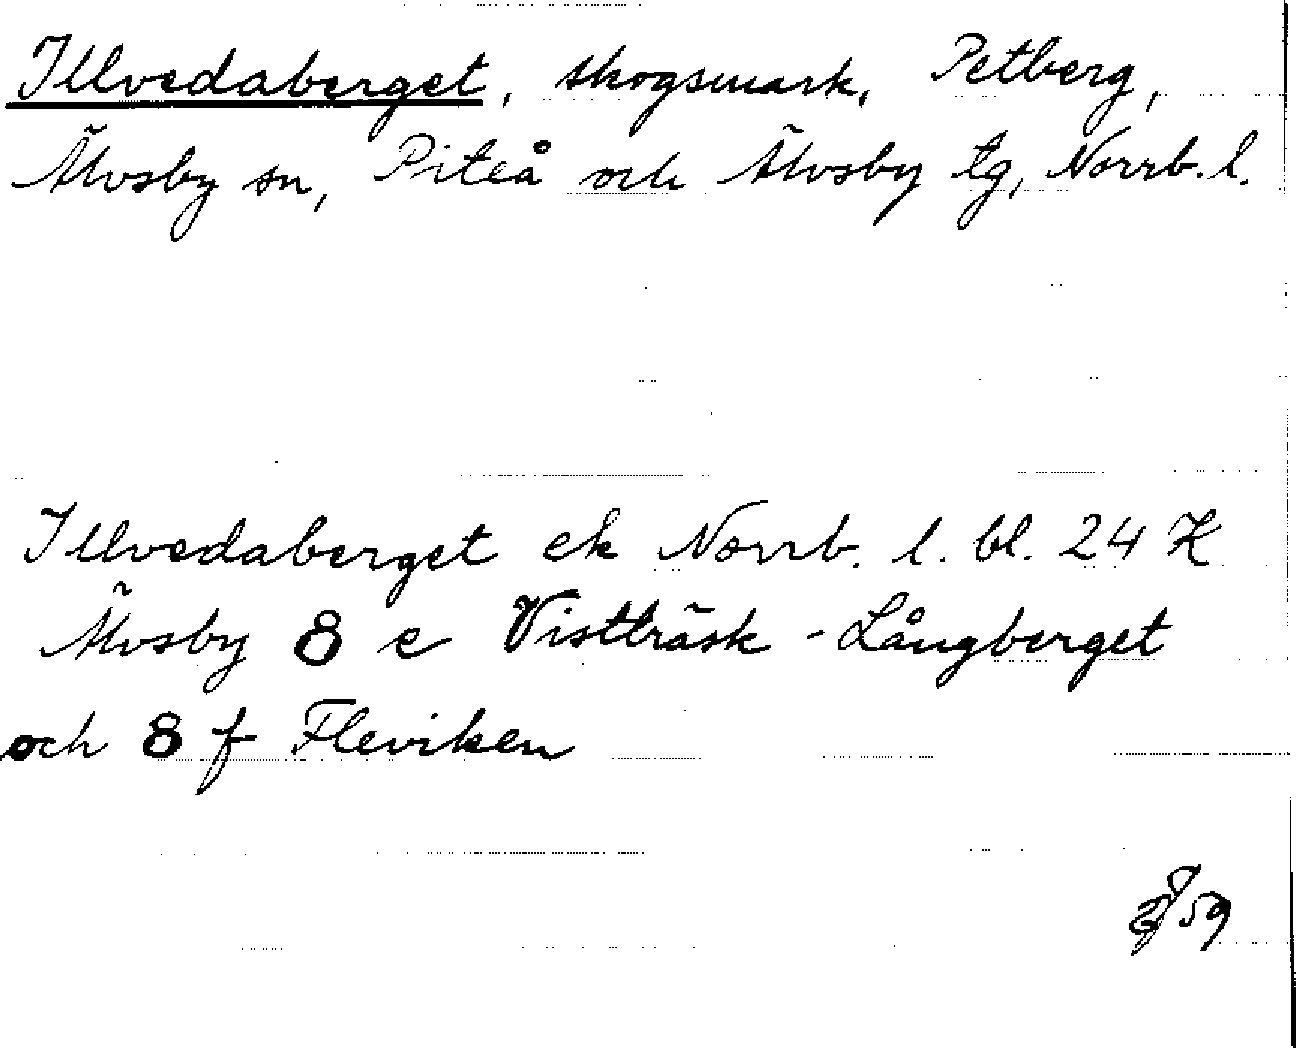 Illvedaberget, skogsmark, Petberg,
Älvsby sn, Piteå och Älvsby tg, Norrb. l.
Illvedaberget ek Norrb. l. bl. 24 K
Älvsby 8 e Vistträsk - Långberget
och 8 f Fleviken
59